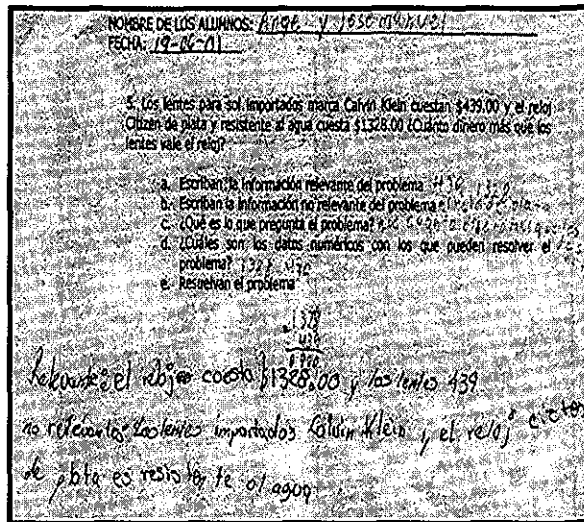 NOMBRE DE LOS ALUMNOS: y
FECHA: 19-06-01
5. Los lentes para sol importados marca Calvin Klein cuestan $439.00 y el reloj
Citizen de plata y resistente al agua cuesta $1328.00 ¿Cuánto dinero más que los
lentes vale el reloj?
a. Escriban la información relevante del problema 439 1328
b. Escriban la información no relevante del problema
c. ¿Qué es lo que pregunta el problema?
d. ¿Cuáles son los datos numéricos con los que pueden resolver el
problema? 1328 439
e. Resuelvan el problema
1328
439
Relevante: el reloj cuesta $1328.00 y los lentes 439
no relevante: Los lentes importados Calvin Klein y el reloj
de plata es resistente al agua